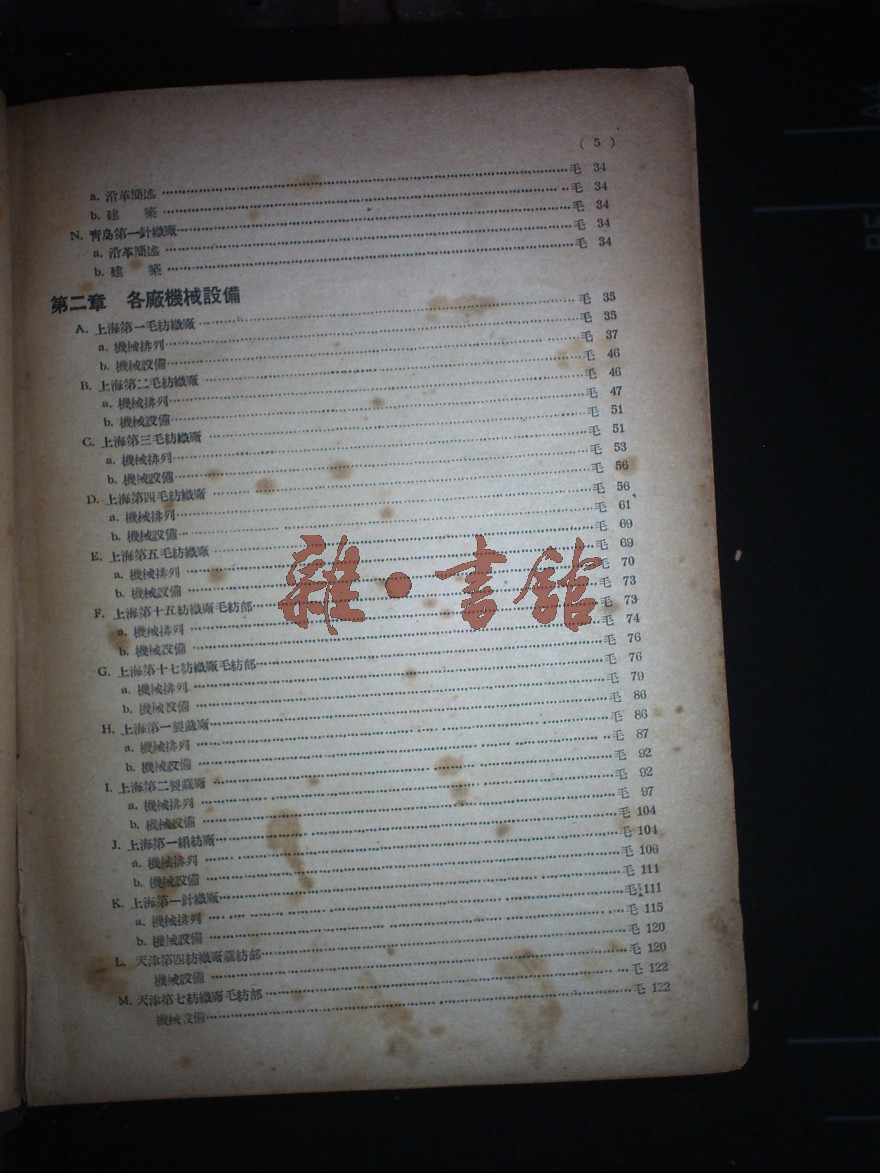 ( 5 )
a. 沿革簡述……毛 34
b. 建　築……毛 34
N. 靑島第一針織廠……毛 34
a. 沿革簡述……毛 34
b. 建　築……毛 34
第二章　各廠機械設備
A. 上海第一毛紡織廠……毛 35
a. 機械排列……毛 35
b. 機械設備……毛 37
B. 上海第二毛紡織廠……毛 46
a. 機械排列……毛 46
b. 機械設備……毛 47
C. 上海第三毛紡織廠……毛 51
a. 機械排列……毛 51
b. 機械設備……毛 53
D. 上海第四毛紡織廠……毛 56
a. 機械排列……毛 56
b. 機械設備……毛 61
E. 上海第五毛紡織廠……毛 69
a. 機械排列……毛 69
b. 機械設備……毛 70
F. 上海第十五紡織廠毛紡部……毛 73
a. 機械排列……毛 73
b. 機械設備……毛 74
G. 上海第十七紡織廠毛紡部……毛 76
a. 機械排列……毛 76
b. 機械設備……毛 79
H. 上海第一製蔴廠……毛 86
a. 機械排列……毛 86
b. 機械設備……毛 87
I. 上海第二製蔴廠……毛 92
a. 機械排列……毛 92
b. 機械設備……毛 97
J. 上海第一絹紡廠……毛 104
a. 機械排列……毛 104
b. 機械設備……毛 106
K. 上海第一針織廠……毛 111
a. 機械排列……毛 111
b. 機械設備……毛 115
L. 天津第四紡織廠蔴紡部……毛 120
機械設備……毛 120
M. 天津第七紡織廠毛紡部……毛 122
機械設備……毛 122
雜·書館